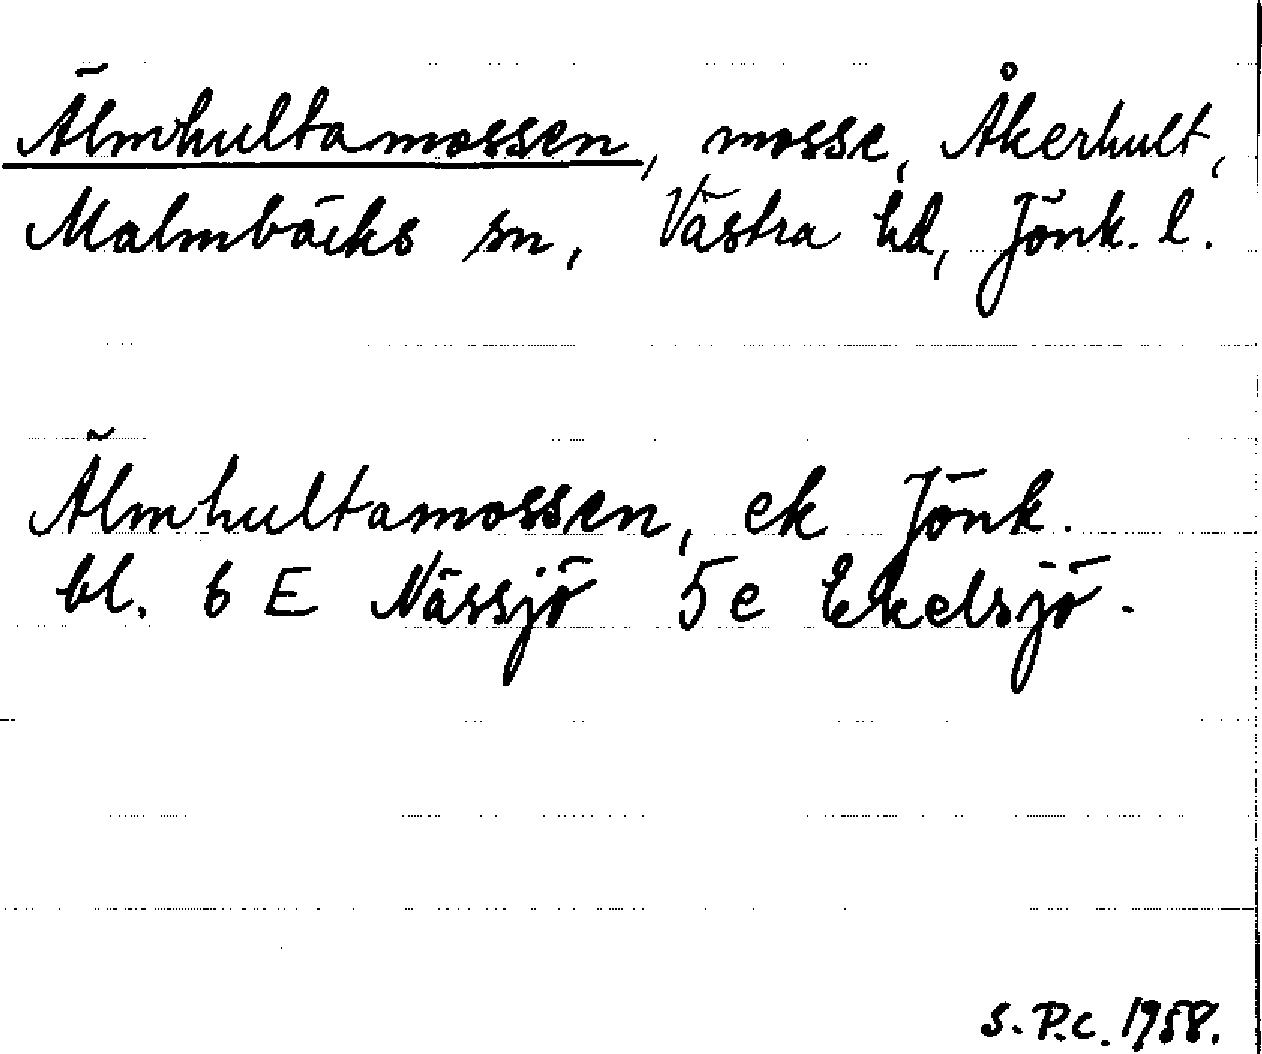 Älmhultamossen, mosse, Åkerhult,
Malmbäcks sn, Västra hd, Jönk. l.
Älmhultamossen, ek Jönk.
bl. 6 E Nässjö 5e Ekelsjö.
S. P.c. 1958.